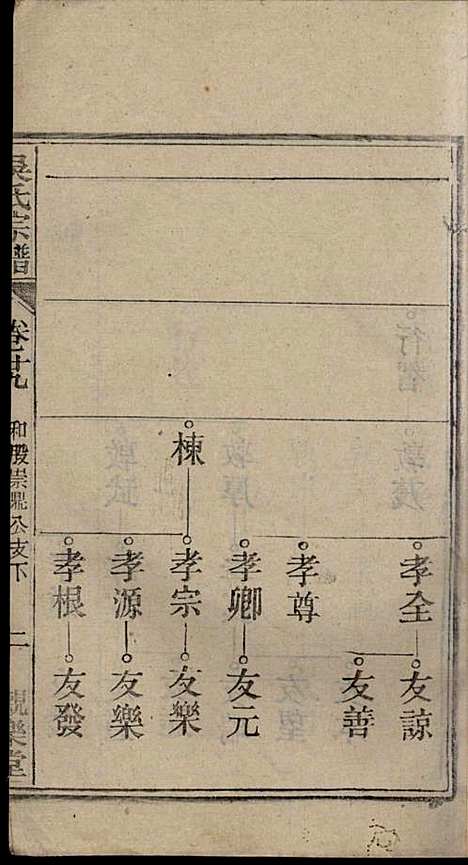 孝全
友諒
友善
孝尊
孝卿
友元
棟
孝宗
友樂
孝源
友樂
孝根
友發
吳氏宗譜
卷七十九
和殷崇鼎公支下
二
親樂堂